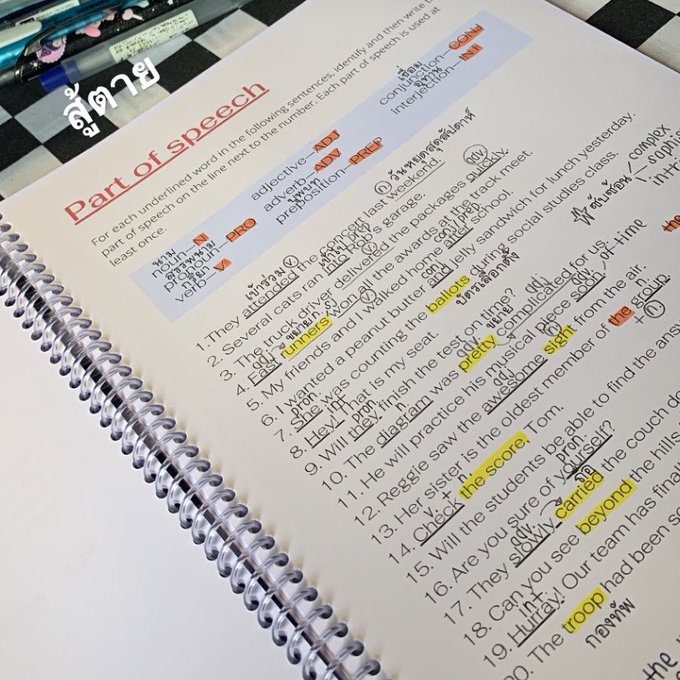 สู้ตาย
Part of speech
For each underlined word in the following sentences, identify and then write
part of speech on the line next to the number. Each part of speech is used at
least once.
นาม
noun—N
สรรพนาม
pronoun—PRO
กริยา
verb—V
adjective—ADJ
adverb—ADV
บุพบท
preposition—PREP
เชื่อม
conjunction—CONJ
อุทาน
interjection—INJ
เข้าร่วม v
n วันหยุดสุดสัปดาห์
1. They attended the concert last weekend.
2. Several cats ran into Bob's garage.
adv
3. The truck driver delivered the packages quickly.
adj v
4. Fast runners won all the awards at the track meet
conj
5. My friends and I walked home after school.
6. I wanted a peanut butter and jelly sandwich for lunch yesterday.
pron บัตรเลือกตั้ง
7. She was counting the ballots during social studies class.
int
8. Hey! That is my seat.
pron
9. Will they finish the test on time?
n adv ขยาย adj ซับซ้อน complex
10. The diagram was pretty complicated for us.
11. He will practice his musical piece soon.
adj n
12. Reggie saw the awesome sight from the air.
n
13. Her sister is the oldest member of the group.
v + n
14. Check the score, Tom.
15. Will the students be able to find the
pron
16. Are you sure of yourself?
adv ถือ
17. They slowly carried the couch
18. Can you see beyond the hills
int
19. Hurray! Our team has
20. The troop had been
กองทัพ
of time
the